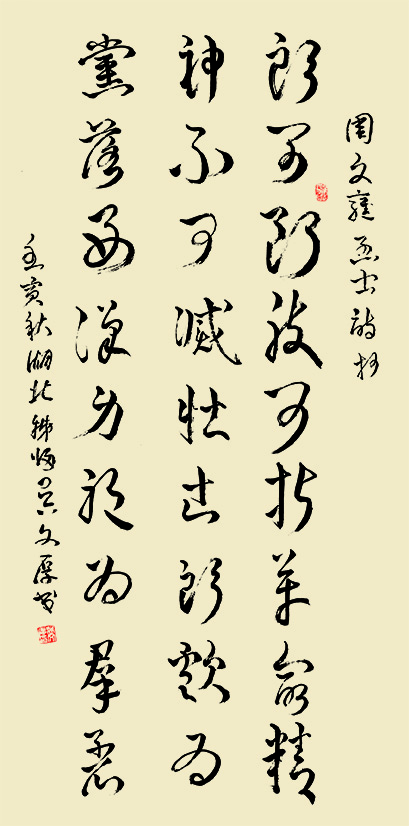 周文雍烈士诗抄
頭可斷肢可折革命精
神不可滅壮士頭顱為
黨落好漢身軀為羣裂
壬寅秋湖北文厚书